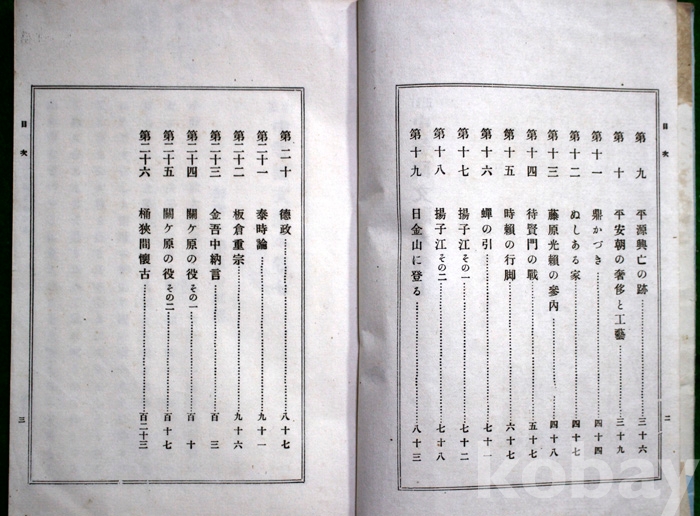 目次
第九 平源興亡の跡……三十六
第十 平安朝の奢侈と工藝……三十九
第十一 鼎かづき……四十四
第十二 ぬしある家……四十七
第十三 藤原光頼の參內……四十八
第十四 待賢門の戰……五十七
第十五 時頼の行脚……六十七
第十六 蟬の引……七十一
第十七 揚子江その一……七十二
第十八 揚子江その二……七十八
第十九 日金山に登る……八十三
二
目次
第二十 德政……八十七
第二十一 泰時論……九十一
第二十二 板倉重宗……九十六
第二十三 金吾中納言……百三
第二十四 關ケ原の役その一……百十
第二十五 關ケ原の役その二……百十七
第二十六 桶狹間懷古……百二十三
三
kobay